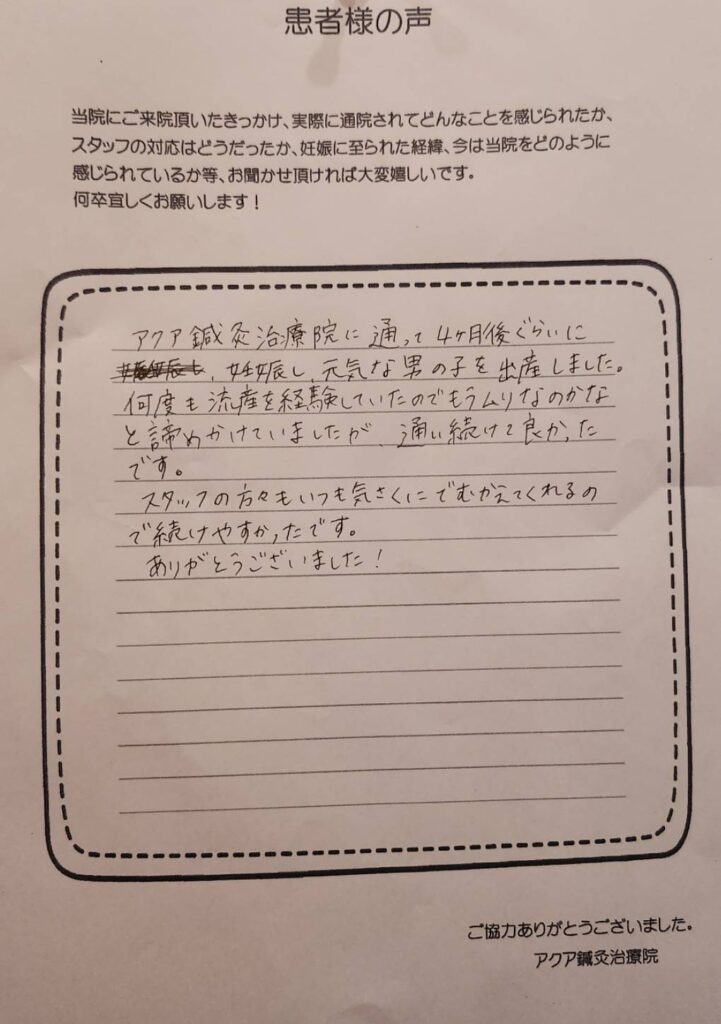 患者様の声
当院にご来院頂いたきっかけ、実際に通院されてどんなことを感じられたか、
スタッフの対応はどうだったか、妊娠に至られた経緯、今は当院をどのように
感じられているか等、お聞かせ頂ければ大変嬉しいです。
何卒宜しくお願いします！
アクア鍼灸治療院に通って4ヶ月後ぐらいに
、妊娠し、元気な男の子を出産しました。
何度も流産を経験していたのでもうムリなのかな
と諦めかけていましたが、通い続けて良かった
です。
スタッフの方々もいつも気さくにでむかえてくれるの
で続けやすかったです。
ありがとうございました！
ご協力ありがとうございました。
アクア鍼灸治療院